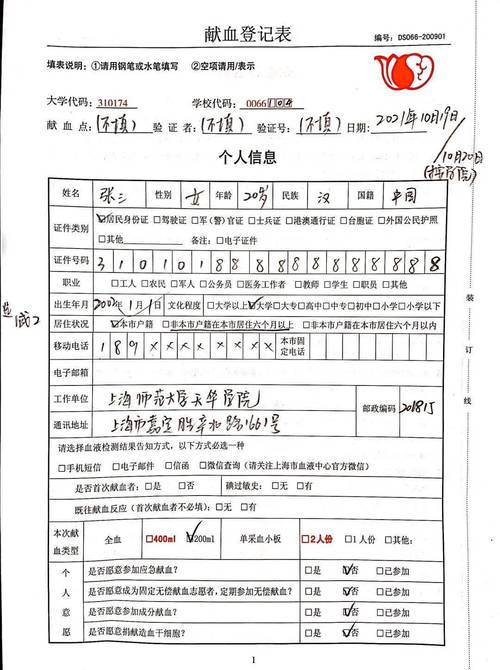 献血登记表
编号: DS066-200901
填表说明: ①请用钢笔或水笔填写 ②空项请用/表示
大学代码: 310174 学校代码: 0066104
献血点: (不填) 验证者: (不填) 验证号: (不填) 日期: 2021年10月19日
/10月20日
个人信息
姓名 张三 性别 女 年龄 20岁 民族 汉 国籍 中国
证件类别 ☑居民身份证 □驾驶证 □军(警)官证 □士兵证 □港澳通行证 □台胞证 □外国公民护照
□其他 备注: □电子证件
证件号码 310101888888888888
职业 □工人 □农民 □军人 □公务员 □医务工作者 □教师 □学生 □职员 □其他
出生年月 2002年1月1日 文化程度 □大学以上 ☑大学 □大专 □高中 □中专 □初中 □小学 □小学以下
居住状况 ☑本市户籍 □非本市户籍在本市居住六个月以上 □非本市户籍在本市居住六个月以内
移动电话 189xxxxxxxx 本市固定电话
电子邮箱
工作单位 上海师范大学天华学院
通讯地址 上海市嘉定胜辛北路1661号
邮政编码 201815
请选择血液检测结果告知方式,以下方式必选一种
□手机短信 □电子邮件 □信函 □微信查询(请关注上海市血液中心官方微信)
是否首次献血者: □是 □否 碘过敏史: □无 □有
既往献血反应(首次献血者不必填): □无 □有
本次献血类型 全血 □400ml ☑200ml 单采血小板 □2人份 □1人份 □其他:
个人意愿
是否愿意参加应急献血? □是 ☑否 □已参加
是否愿意成为固定无偿献血志愿者,定期参加无偿献血? □是 ☑否 □已参加
是否愿意参加成分献血? □是 ☑否 □已参加
是否愿意捐献造血干细胞? □是 ☑否 □已参加
装
订
线
1